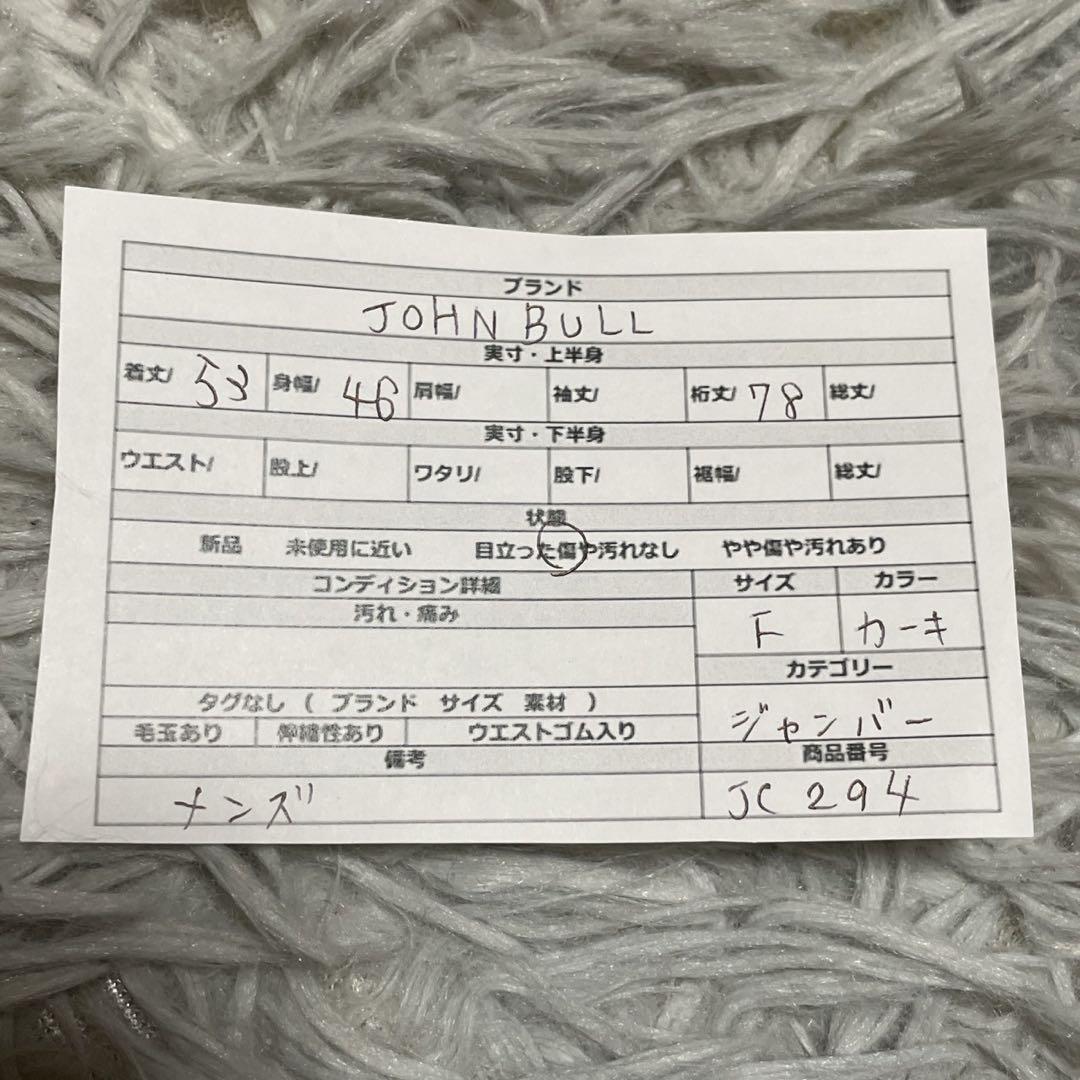 ブランド
JOHN BULL
実寸・上半身
着丈/ 53 身幅/ 46 肩幅/ 袖丈/ 裄丈/ 78 総丈/
実寸・下半身
ウエスト/ 股上/ ワタリ/ 股下/ 裾幅/ 総丈/
状態
新品 未使用に近い 目立った傷や汚れなし やや傷や汚れあり
コンディション詳細 サイズ カラー
汚れ・痛み
F カーキ
カテゴリー
タグなし ( ブランド サイズ 素材 )
ジャンバー
毛玉あり 伸縮性あり ウエストゴム入り
備考 商品番号
メンズ JC 294